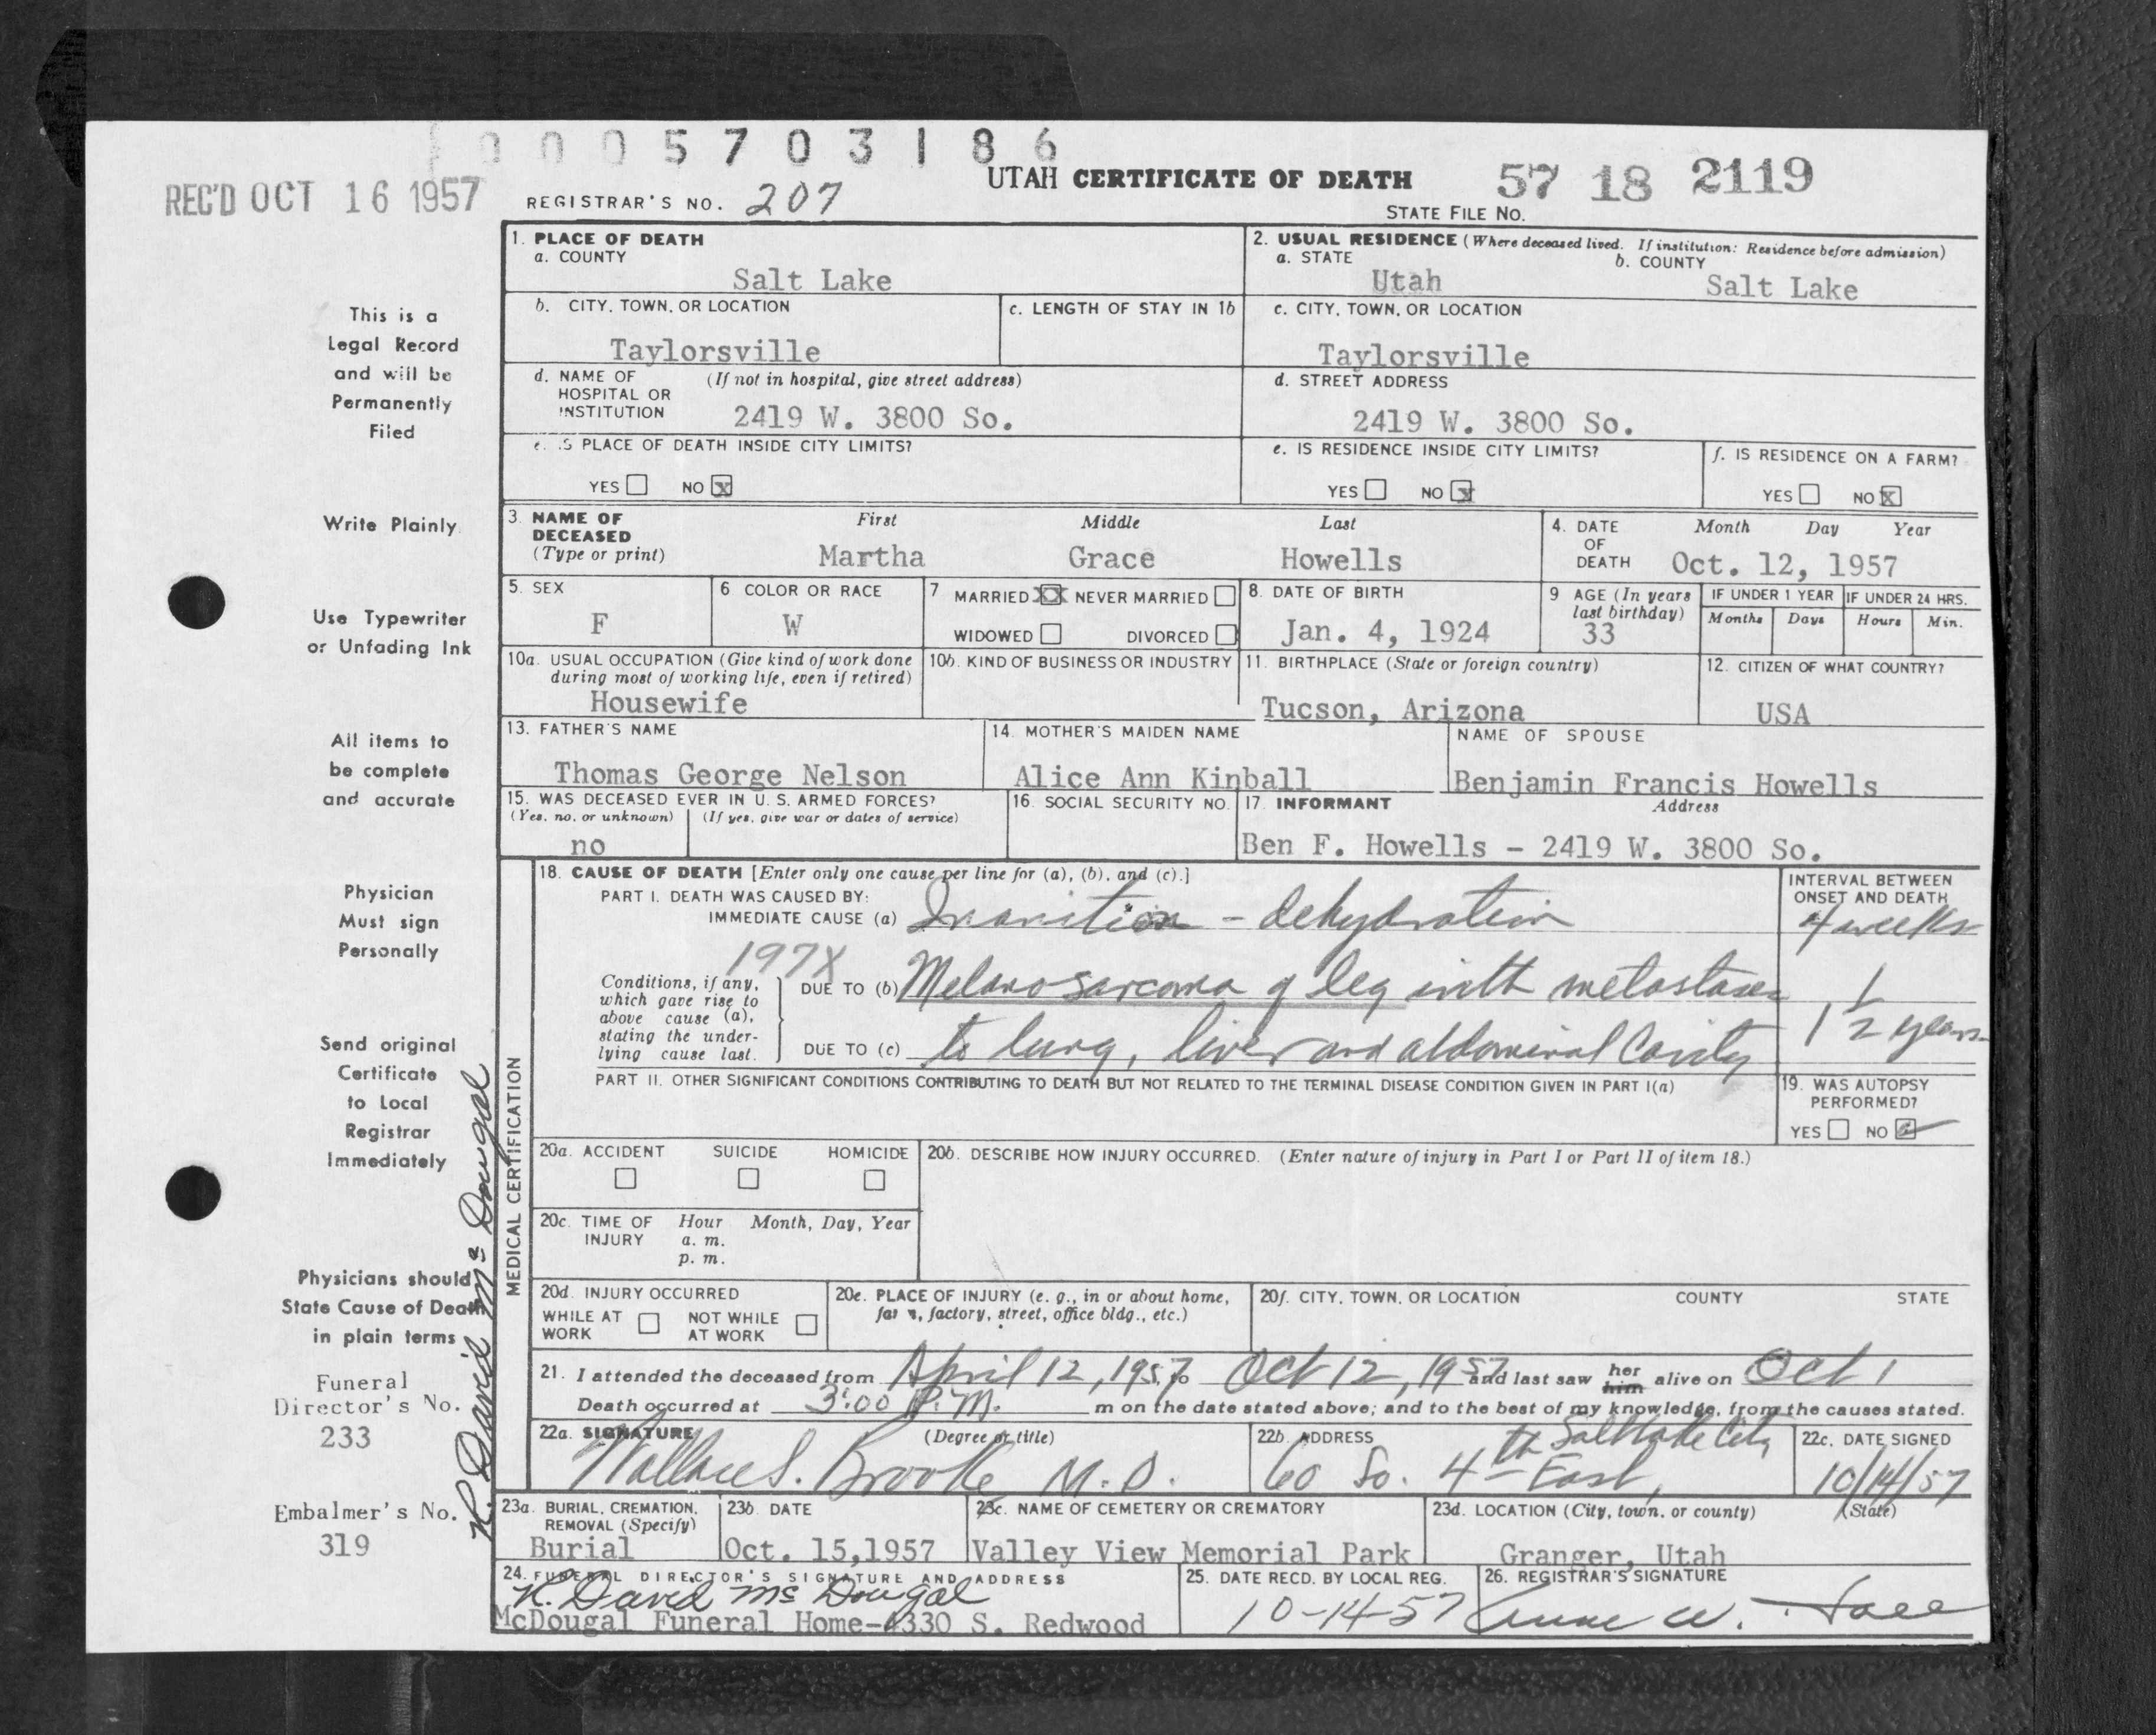 0 0 0 5 7 0 3 1 8 6
REC'D OCT 16 1957
REGISTRAR'S NO. 207
UTAH CERTIFICATE OF DEATH
57 18 2119
STATE FILE NO.
This is a
Legal Record
and will be
Permanently
Filed
Write Plainly
Use Typewriter
or Unfading Ink
All items to
be complete
and accurate
Physician
Must sign
Personally
Send original
Certificate
to Local
Registrar
Immediately
Physicians should
State Cause of Death
in plain terms
Funeral
Director's No.
233
Embalmer's No.
319
R. David Mc Dougal
1. PLACE OF DEATH
a. COUNTY
Salt Lake
2. USUAL RESIDENCE (Where deceased lived. If institution: Residence before admission)
a. STATE b. COUNTY
Utah Salt Lake
b. CITY, TOWN, OR LOCATION c. LENGTH OF STAY IN 1b
Taylorsville
c. CITY, TOWN, OR LOCATION
Taylorsville
d. NAME OF (If not in hospital, give street address)
HOSPITAL OR
INSTITUTION 2419 W. 3800 So.
d. STREET ADDRESS
2419 W. 3800 So.
e. IS PLACE OF DEATH INSIDE CITY LIMITS?
YES NO X
e. IS RESIDENCE INSIDE CITY LIMITS?
YES NO X
f. IS RESIDENCE ON A FARM?
YES NO X
3. NAME OF First Middle Last
DECEASED
(Type or print) Martha Grace Howells
4. DATE Month Day Year
OF
DEATH Oct. 12, 1957
5. SEX
F
6 COLOR OR RACE
W
7 MARRIED XX NEVER MARRIED
WIDOWED DIVORCED
8. DATE OF BIRTH
Jan. 4, 1924
9 AGE (In years
last birthday)
33
IF UNDER 1 YEAR IF UNDER 24 HRS.
Months Days Hours Min.
10a. USUAL OCCUPATION (Give kind of work done
during most of working life, even if retired)
Housewife
10b. KIND OF BUSINESS OR INDUSTRY
11. BIRTHPLACE (State or foreign country)
Tucson, Arizona
12. CITIZEN OF WHAT COUNTRY?
USA
13. FATHER'S NAME
Thomas George Nelson
14. MOTHER'S MAIDEN NAME
Alice Ann Kinball
NAME OF SPOUSE
Benjamin Francis Howells
15. WAS DECEASED EVER IN U. S. ARMED FORCES?
(Yes, no, or unknown) (If yes, give war or dates of service)
no
16. SOCIAL SECURITY NO.
17. INFORMANT Address
Ben F. Howells - 2419 W. 3800 So.
MEDICAL CERTIFICATION
18. CAUSE OF DEATH [Enter only one cause per line for (a), (b), and (c).]
PART I. DEATH WAS CAUSED BY:
IMMEDIATE CAUSE (a) Inanition - dehydration
INTERVAL BETWEEN
ONSET AND DEATH
4 weeks
197X
Conditions, if any,
which gave rise to
above cause (a),
stating the under-
lying cause last.
DUE TO (b) Melanosarcoma of leg with metastases
DUE TO (c) to lung, liver and abdominal Cavity
1 1/2 years
PART II. OTHER SIGNIFICANT CONDITIONS CONTRIBUTING TO DEATH BUT NOT RELATED TO THE TERMINAL DISEASE CONDITION GIVEN IN PART I(a)
19. WAS AUTOPSY
PERFORMED?
YES NO
20a. ACCIDENT SUICIDE HOMICIDE
20b. DESCRIBE HOW INJURY OCCURRED. (Enter nature of injury in Part I or Part II of item 18.)
20c. TIME OF Hour Month, Day, Year
INJURY a. m.
p. m.
20d. INJURY OCCURRED
WHILE AT NOT WHILE
WORK AT WORK
20e. PLACE OF INJURY (e. g., in or about home,
farm, factory, street, office bldg., etc.)
20f. CITY, TOWN, OR LOCATION COUNTY STATE
21. I attended the deceased from April 12, 1957, to Oct 12, 1957 and last saw her him alive on Oct 1
Death occurred at 3:00 P.M. m on the date stated above; and to the best of my knowledge, from the causes stated.
22a. SIGNATURE (Degree or title)
Wallace S. Brooke M.D.
22b. ADDRESS
60 So. 4th East, Salt Lake City
22c. DATE SIGNED
10/14/57
23a. BURIAL, CREMATION,
REMOVAL (Specify)
Burial
23b. DATE
Oct. 15,1957
23c. NAME OF CEMETERY OR CREMATORY
Valley View Memorial Park
23d. LOCATION (City, town, or county) (State)
Granger, Utah
24. FUNERAL DIRECTOR'S SIGNATURE AND ADDRESS
R. David Mc Dougal
McDougal Funeral Home-4330 S. Redwood
25. DATE RECD. BY LOCAL REG.
10-14-57
26. REGISTRAR'S SIGNATURE